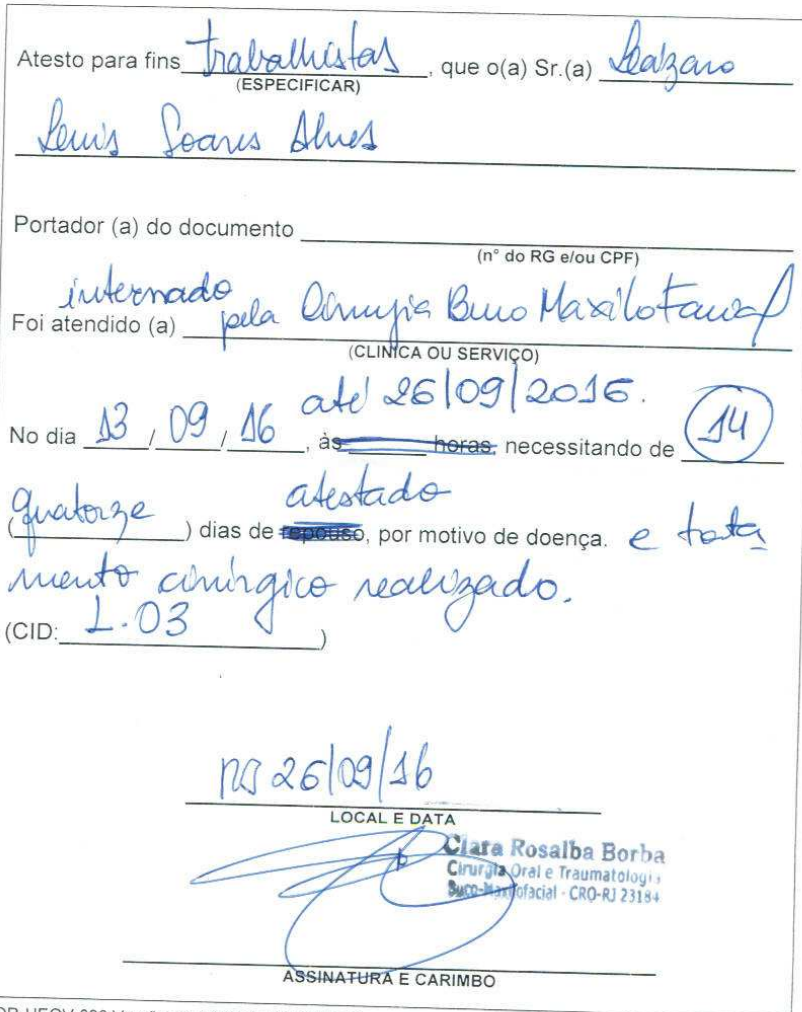 Atesto para fins trabalhistas, que o(a) Sr.(a) Leázaro
(ESPECIFICAR)
Lewis Soares Alves
Portador (a) do documento
(n° do RG e/ou CPF)
internado
Foi atendido (a) pela Cirurgia Buco Maxilo Facial
(CLINICA OU SERVIÇO)
até 26/09/2016.
No dia 13 / 09 / 16, às horas, necessitando de 14
atestado
(quatorze) dias de repouso, por motivo de doença. e trata
mento cirúrgico realizado.
(CID: L.03)
RJ 26/09/16
LOCAL E DATA
Clara Rosalba Borba
Cirurgia Oral e Traumatologia
Buco-Maxilofacial - CRO-RJ 23184
ASSINATURA E CARIMBO